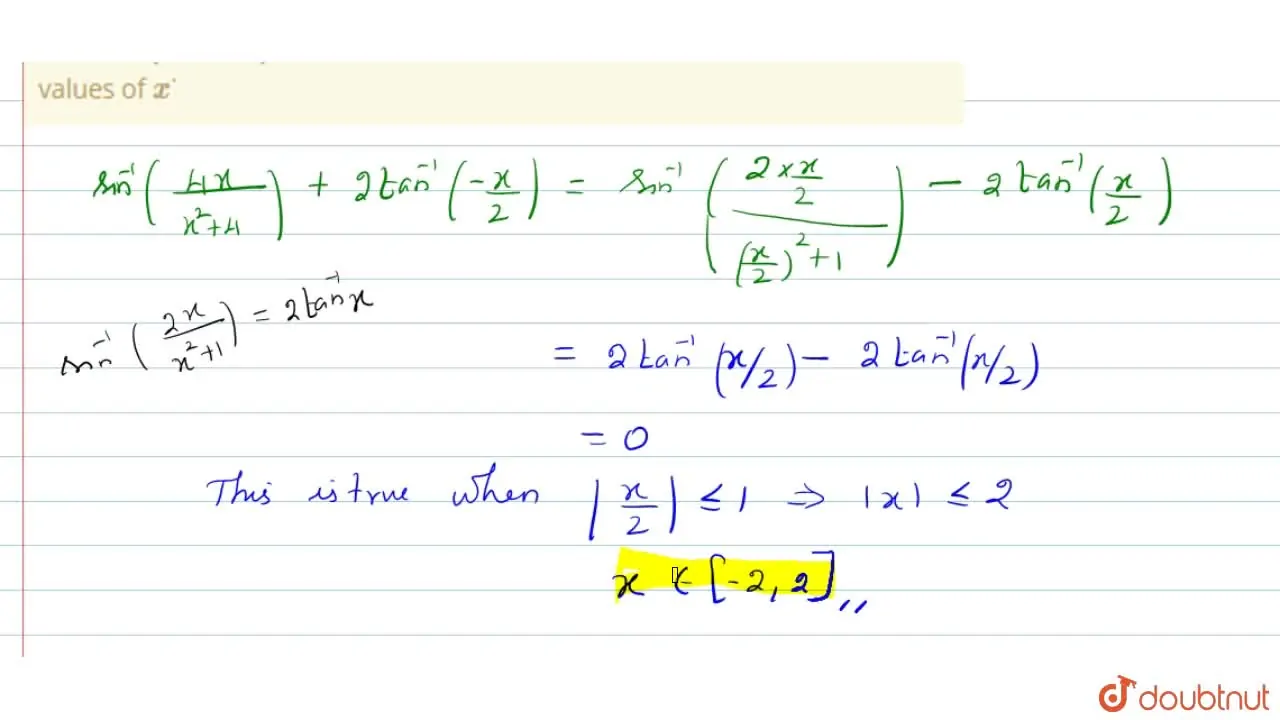 values of x
sin⁻¹(4x/(x²+4)) + 2tan⁻¹(-x/2) = sin⁻¹((2×x/2)/((x/2)²+1)) - 2tan⁻¹(x/2)
sin⁻¹(2x/(x²+1)) = 2tan⁻¹x
= 2tan⁻¹(x/2) - 2tan⁻¹(x/2)
= 0
This is true when |x/2| ≤ 1 ⇒ |x| ≤ 2
x ∈ [-2, 2],,
doubtnut